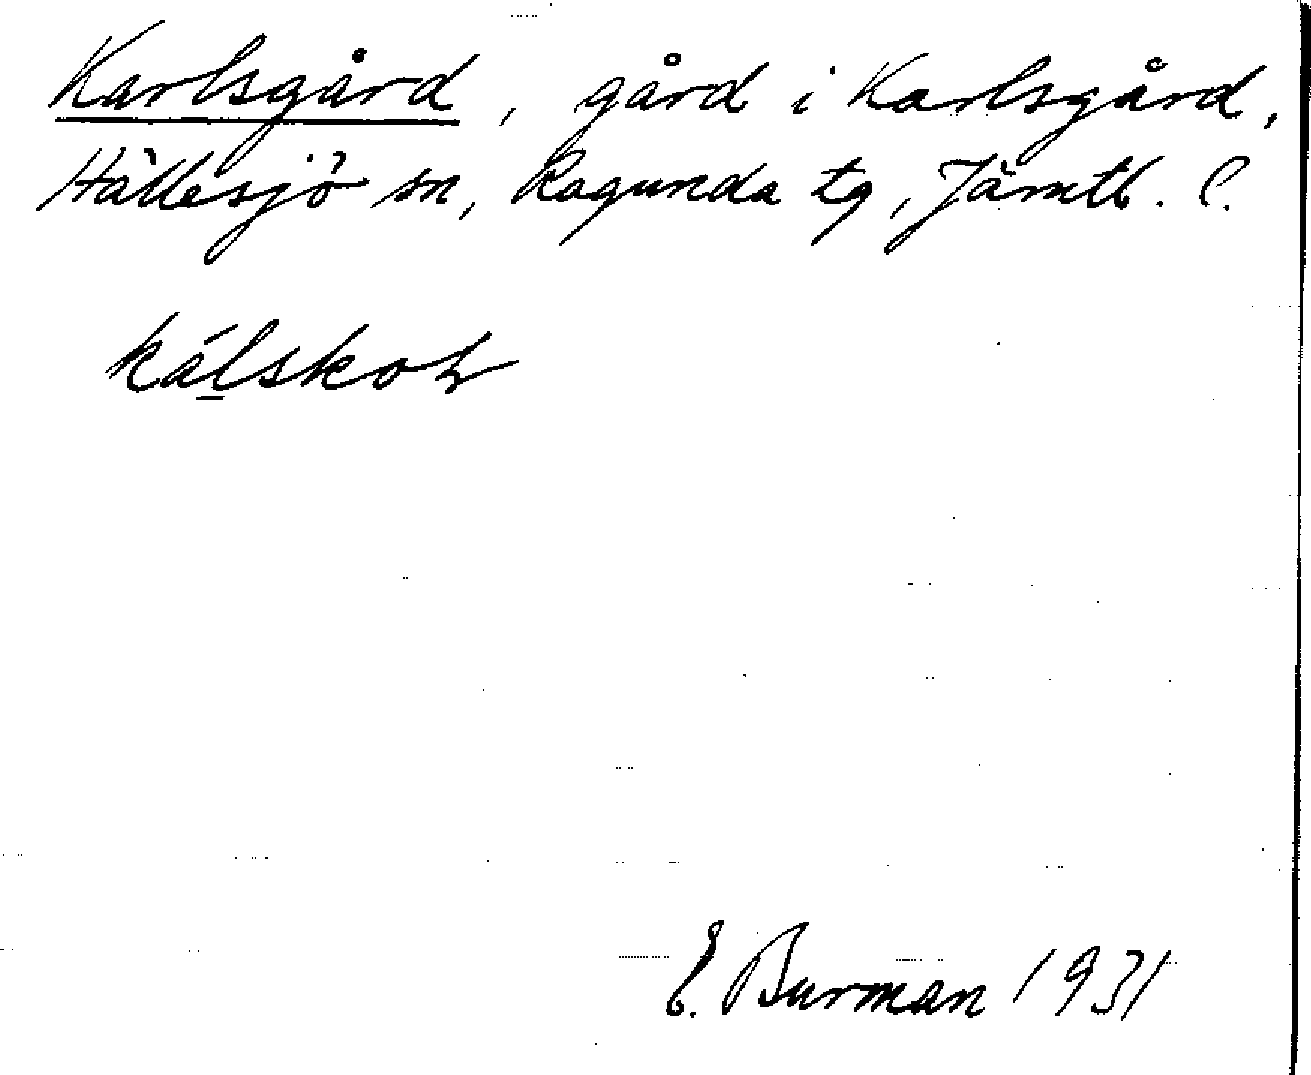 Karlsgård, gård i Karlsgård,
Hällesjö sn, Ragunda tg, Jämtl. l.
E. Burman 1931